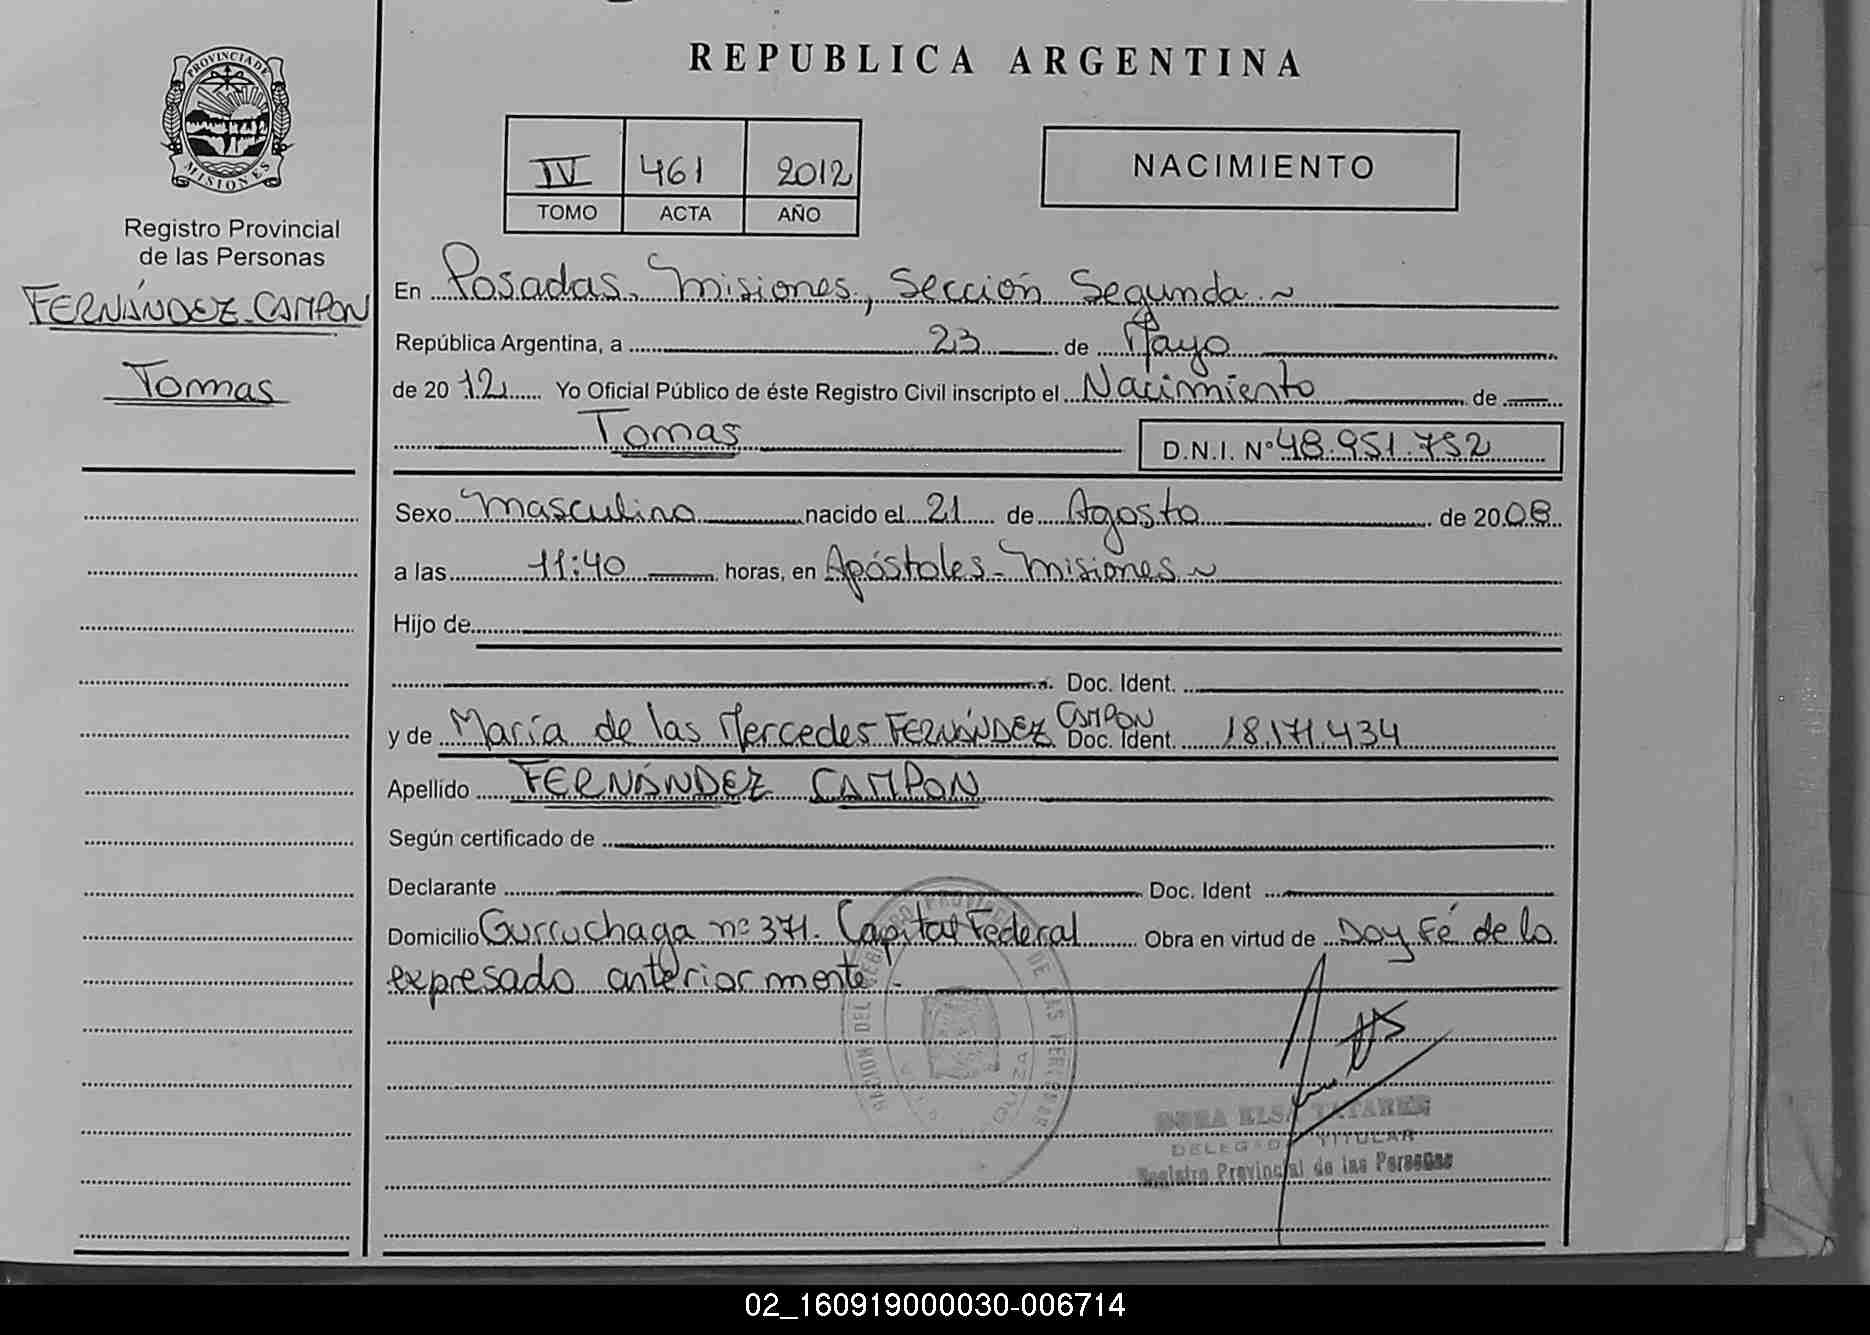 PROVINCIA DE
MISIONES
Registro Provincial
de las Personas
FERNÁNDEZ CAMPON
Tomas
REPUBLICA ARGENTINA
IV 461 2012
TOMO ACTA AÑO
NACIMIENTO
En Posadas, Misiones, Sección Segunda ~
República Argentina, a 23 de Mayo
de 2012 Yo Oficial Público de éste Registro Civil inscripto el Nacimiento de
Tomas D.N.I. Nº 48.951.752
Sexo Masculino nacido el 21 de Agosto de 2008
a las 11:40 horas, en Apóstoles - Misiones ~
Hijo de
Doc. Ident.
y de María de las Mercedes FERNÁNDEZ CAMPON Doc. Ident. 18.171.434
Apellido FERNÁNDEZ CAMPON
Según certificado de
Declarante Doc. Ident
Domicilio Gurruchaga nº 371. Capital Federal Obra en virtud de Doy Fé de lo
expresado anteriormente.-
DELEGADA TITULAR
Registro Provincial de las Personas
02_160919000030-006714